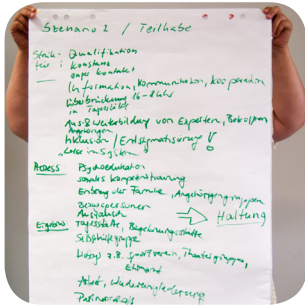 Szenario 2 / Teilhabe
Struk- Qualifikation
tur: Konstanz
enger Kontakt
Information, Kommunikation, Kooperation
Überbrückung 16-8 Uhr
in Tagesstätte
Aus- & Weiterbildung von Experten, Betroffenen
Angehörigen
Inklusion / Entstigmatisierung !
"Lotse im System"
Prozess Psychoedukation
soziales Kompetenztraining
Einbezug der Familie, Angehörigengruppen
Bezugspersonen
Austausch
Ergebnis Tagesstätte, Begegnungsstätte
Haltung
Selbsthilfegruppe
Hobby z.B. Sportverein, Theatergruppen,
Ehrenamt
Arbeit, Wiedereingliederung
Partnerschaft